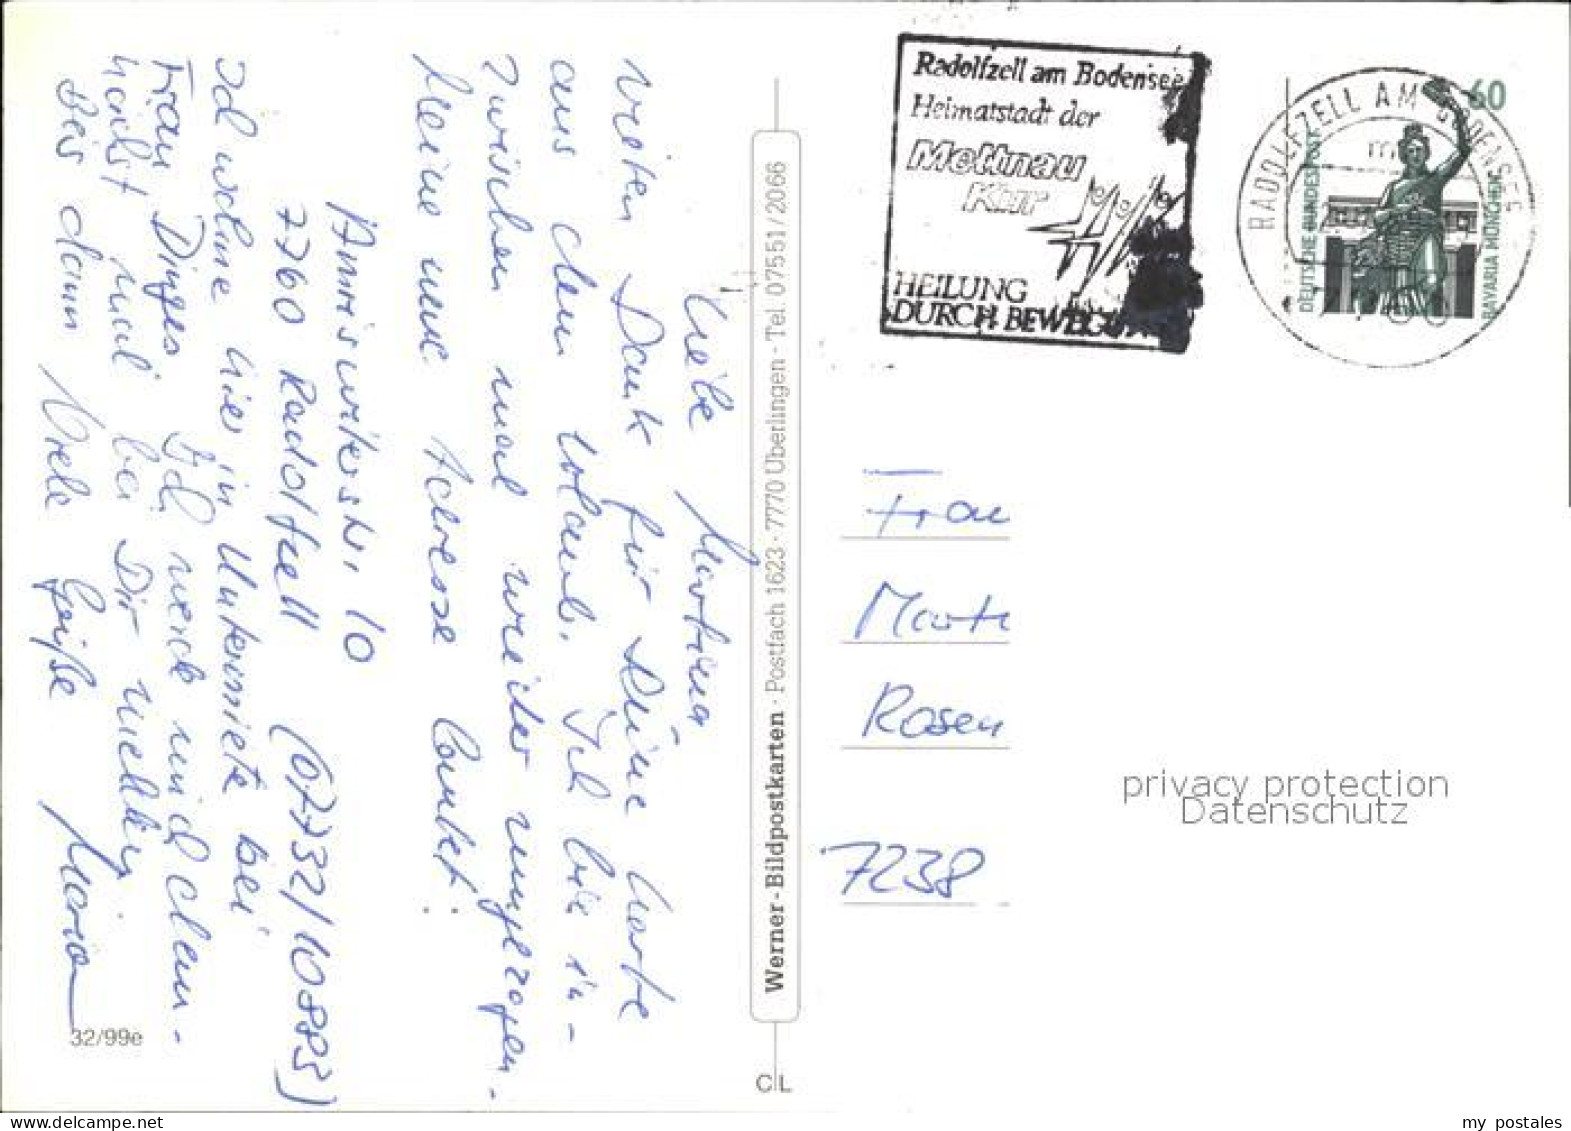 Liebe Martina
vielen Dank für Deine Karte
aus dem Urlaub. Ich bin in-
zwischen mal wieder umgezogen.
Meine neue Adresse lautet:
10
7760 Radolfzell (07732/10883)
Ich wohne hier in Untermiete bei
Frau Dinges. Ich werde mich dem-
nächst mal bei Dir melden.
Bis dann Viele Grüße Marion
32/99e
Werner-Bildpostkarten · Postfach 1623 · 7770 Überlingen · Tel. 07551/2066
CL
Radolfzell am Bodensee
Heimatstadt der
Mettnau
Kur
HEILUNG
DURCH BEWEGUNG
RADOLFZELL AM BODENSEE
60
DEUTSCHE BUNDESPOST
BAVARIA MÜNCHEN
Frau
Marti
Rosen
7238
privacy protection
Datenschutz
www.delcampe.net
my_postales